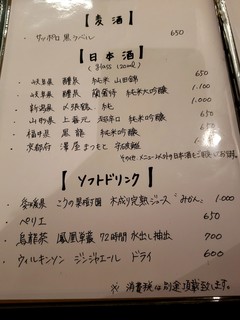 【麦酒】
・サッポロ 黒ラベル 650
【日本酒】
(Glass 120ml)
・岐阜県 醴泉 純米 山田錦 650
・岐阜県 醴泉 蘭奢待 純米大吟醸 1.100
・新潟県 〆張鶴 純 1.000
・山形県 上喜元 超辛口 純米吟醸 650
・福井県 黒龍 純米吟醸
・京都府 澤屋まつもと 650
その他、メニュー以外の日本酒もご用意しております。
【ソフトドリンク】
・愛媛県 こうの果樹園 木成り完熟ジュース"みかん" 1.000
・ペリエ 650
・烏龍茶 鳳凰単叢 72時間 水出し抽出 700
・ウィルキンソン ジンジャエール ドライ 600
※ 消費税は別途頂戴致します。